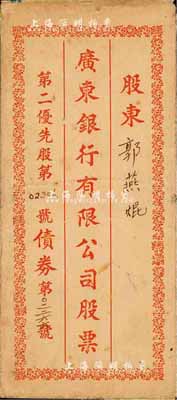 股東 郭燕焜
廣東銀行有限公司股票
第二優先股第 號債券第 號
上海阳明拍卖